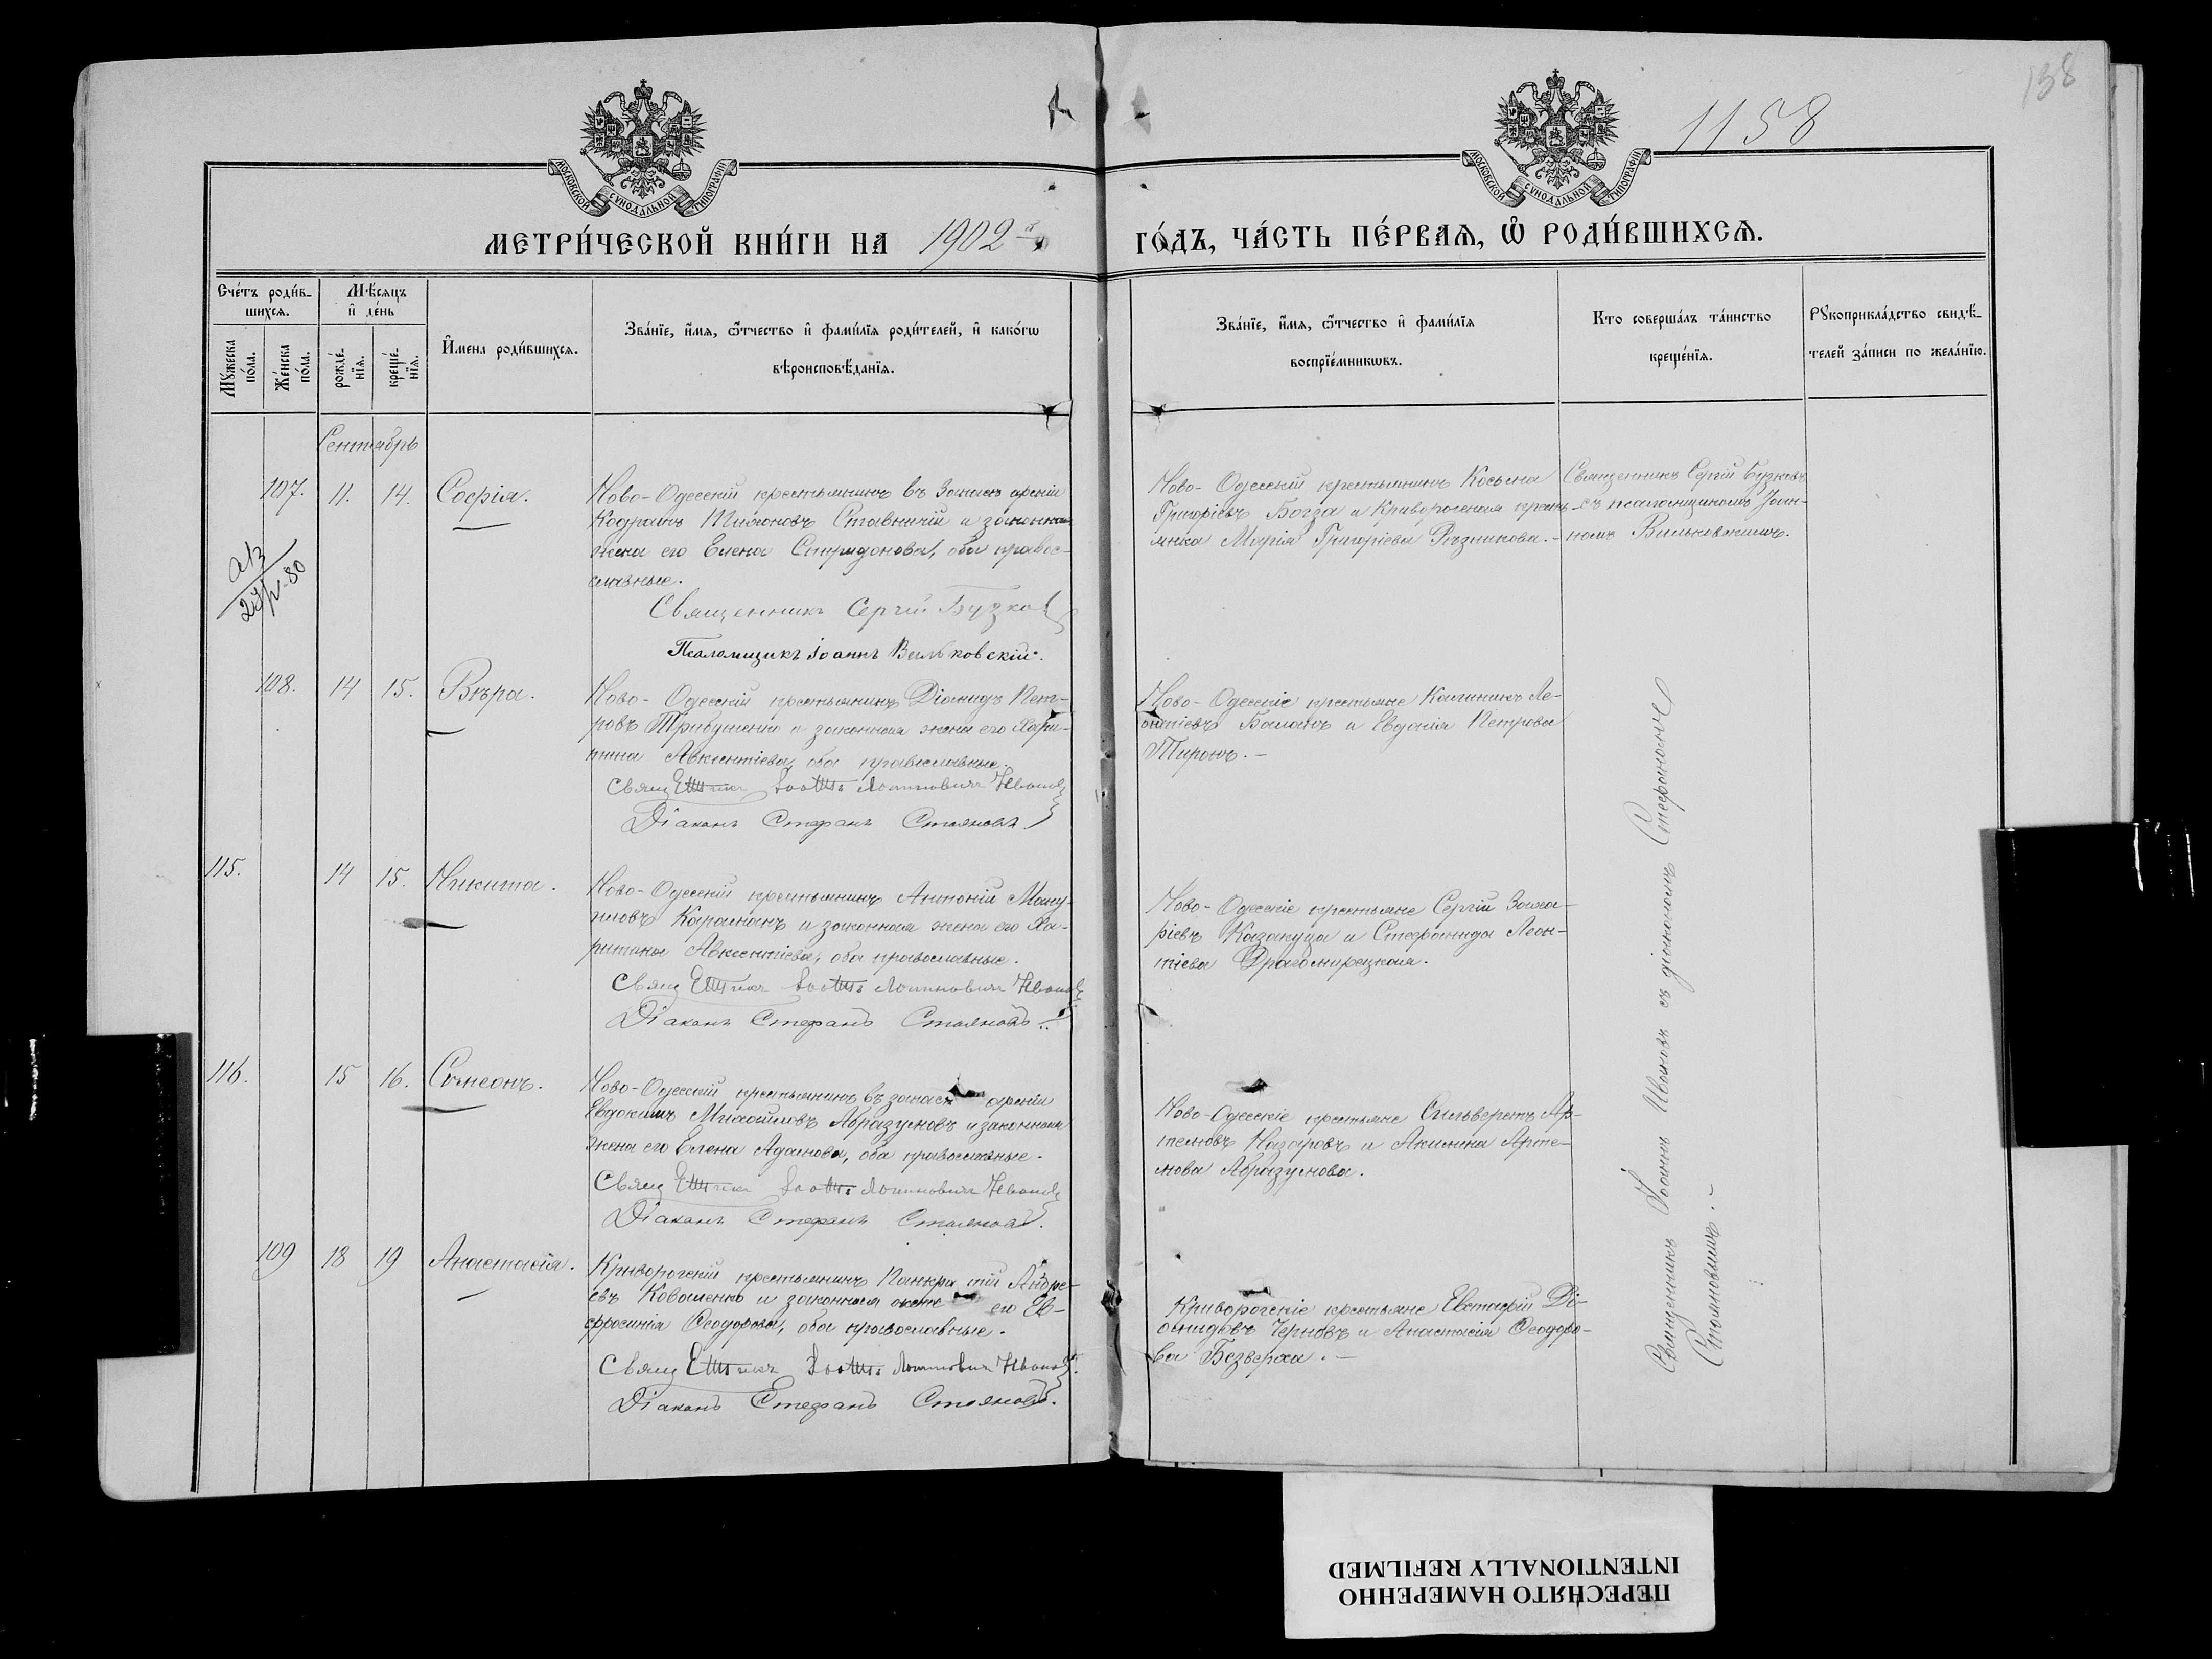 138
1158
МОСКОВСКОЙ СѴНОДАЛЬНОЙ ТИПОГРАФІИ
МОСКОВСКОЙ СѴНОДАЛЬНОЙ ТИПОГРАФІИ
МЕТРИ́ЧЕСКОЙ КНИ́ГИ НА 1902-й ГО́ДЪ, ЧА́СТЬ ПЕ́РВАѦ, Ѡ҆ РОДИ́ВШИХСѦ.
Сче́тъ роди́в-
шихсѧ.
Мꙋ́жеска по́ла.
Же́нска по́ла.
Мѣ́сѧцъ
и҆ де́нь
рожде́-
нїѧ.
креще́-
нїѧ.
И҆мена роди́вшихсѧ.
Зва́нїе, и҆́мѧ, ѻ҆́тчество и҆ фами́лїѧ роди́телей, и҆ како́гѡ
вѣроисповѣ́данїѧ.
Зва́нїе, и҆́мѧ, ѻ҆́тчество и҆ фами́лїѧ
воспрїе́мникѡвъ.
Кто соверша́лъ та́инство
креще́нїѧ.
Рꙋкоприкла́дство свидѣ́-
телей за́писи по жела́нїю.
Сентябрь
107. 11. 14. Софія.
Ново-Одесскій крестьянинъ въ запасѣ арміи
Кодратъ Тихоновъ Ставничій и законная
жена его Елена Спиридонова, оба правос-
лавные.
Священникъ Сергій Бузков
Псаломщикъ Іоаннъ Вильковскій.
Ново-Одесскій крестьянинъ Косьма
Григорьевъ Богза и Криворогская крестья-
янка Марія Григоріева Рѣзникова.-
Священникъ Сергій Бузковъ
съ псаломщикомъ Іоан-
номъ Вильковскимъ.
108. 14 15. Вѣра.
Ново-Одесскій крестьянинъ Діомидъ Пет-
ровъ Трибушенко и законная жена его Хари-
тина Авксентіева, оба православные.
Священникъ Іоаннъ Логиновичъ Ивановъ
Діаконъ Стефанъ Стояновъ.
Ново-Одесскіе крестьяне Калиникъ Ле-
онтіевъ Баланъ и Евдокія Петрова
Тиронъ.-
115. 14 15. Никита.
Ново-Одесскій крестьянинъ Антоній Ману-
иловъ Караманъ и законная жена его Ха-
ритина Авксентіева, оба православные.
Священникъ Іоаннъ Логиновичъ Ивановъ
Діаконъ Стефанъ Стояновъ.
Ново-Одесскіе крестьяне Сергій Заха-
ріевъ Казакуца и Стефанида Леон-
тіева Драгомирецкая.
116. 15 16. Симеонъ.
Ново-Одесскій крестьянинъ въ запасѣ арміи
Евдокимъ Михайловъ Абразумовъ и законная
жена его Елена Адамова, оба православные.
Священникъ Іоаннъ Логиновичъ Ивановъ
Діаконъ Стефанъ Стояновъ.
Ново-Одесскіе крестьяне Сильверстъ Ар-
темовъ Назаровъ и Акилина Арте-
мова Абразумова.
109 18 19 Анастасія.
Криворогскій крестьянинъ Панкратій Андре-
евъ Коваленко и законная жена его Ев-
фросинія Ѳеодорова, оба православные.
Священникъ Іоаннъ Логиновичъ Ивановъ.
Діаконъ Стефанъ Стояновъ.
Криворогскіе крестьяне Евстафій Ді-
омидовъ Черновъ и Анастасія Ѳеодоро-
ва Безверха.-
Священникъ Іоаннъ Ивановъ съ діакономъ Стефаномъ
Стояновымъ.-
ПЕРЕСНЯТО НАМЕРЕННО
INTENTIONALLY REFILMED